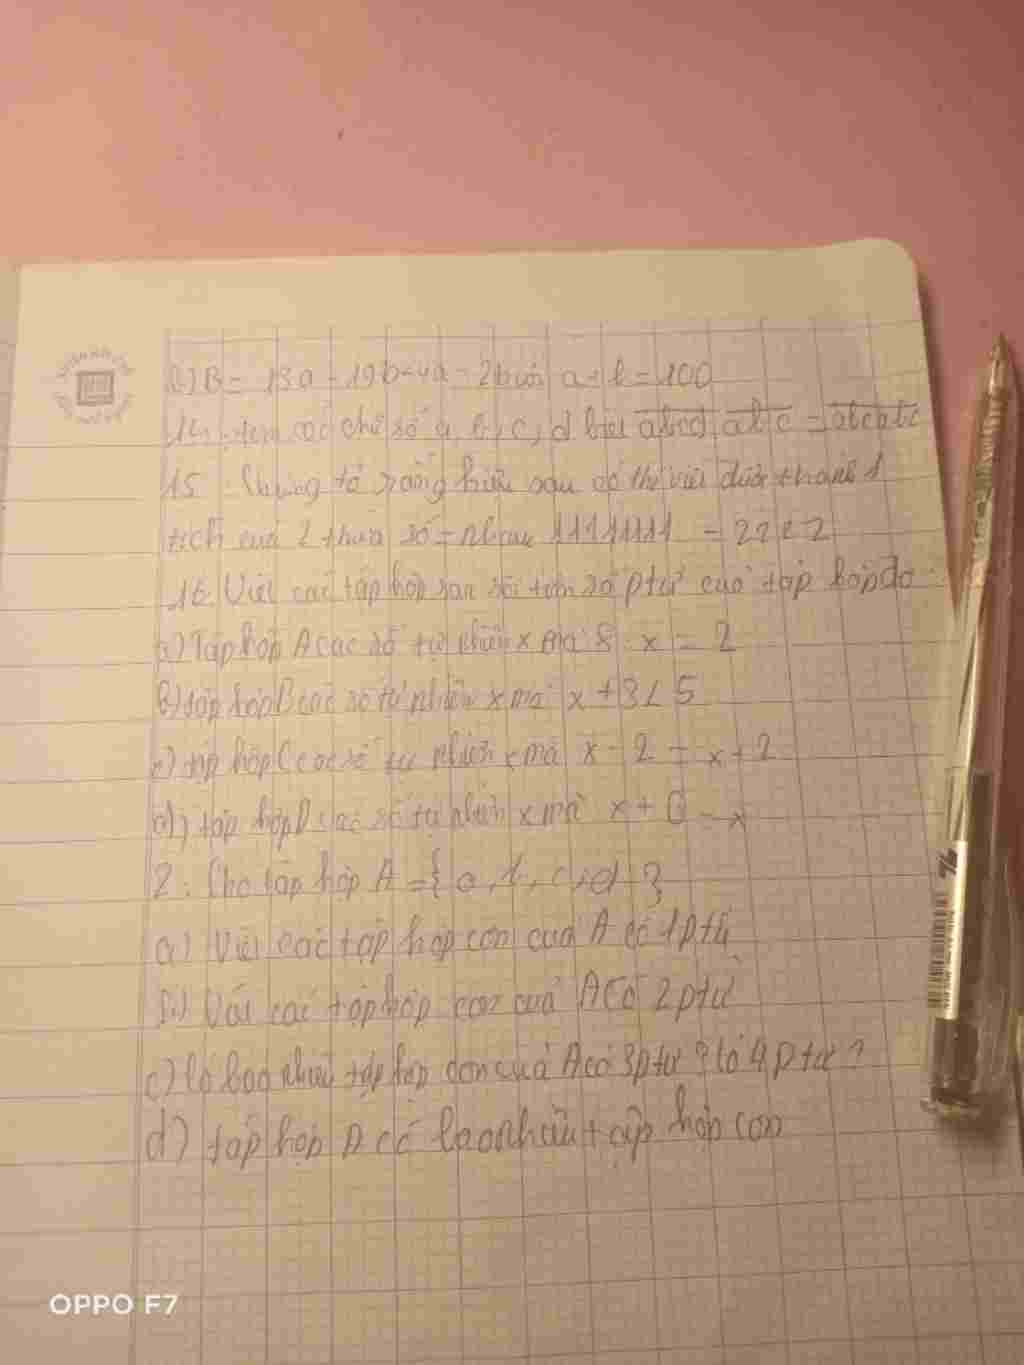 B = 13a + 19b + 4a - 2b với a + b = 100
14: tìm các chữ số a, b, c, d biết abcd . abc = abcabc
15: Chứng tỏ rằng hiệu sau có thể viết được thành 1
tích của 2 thừa số = nhau 11111111 - 2222
16 Viết các tập hợp sau rồi tìm số ptử của tập hợp đó
a) Tập hợp A các số tự nhiên x mà 8 : x = 2
b) tập hợp B các số tự nhiên x mà x + 3 < 5
c) tập hợp C các số tự nhiên x mà x - 2 = x + 2
d) tập hợp D các số tự nhiên x mà x + 0 = x
2: Cho tập hợp A = { a, b, c, d }
a) Viết các tập hợp con của A có 1 ptử
b) Viết các tập hợp con của A có 2 ptử
c) Có bao nhiêu tập hợp con của A có 3 ptử ? có 4 ptử ?
d) tập hợp A có bao nhiêu tập hợp con
OPPO F7